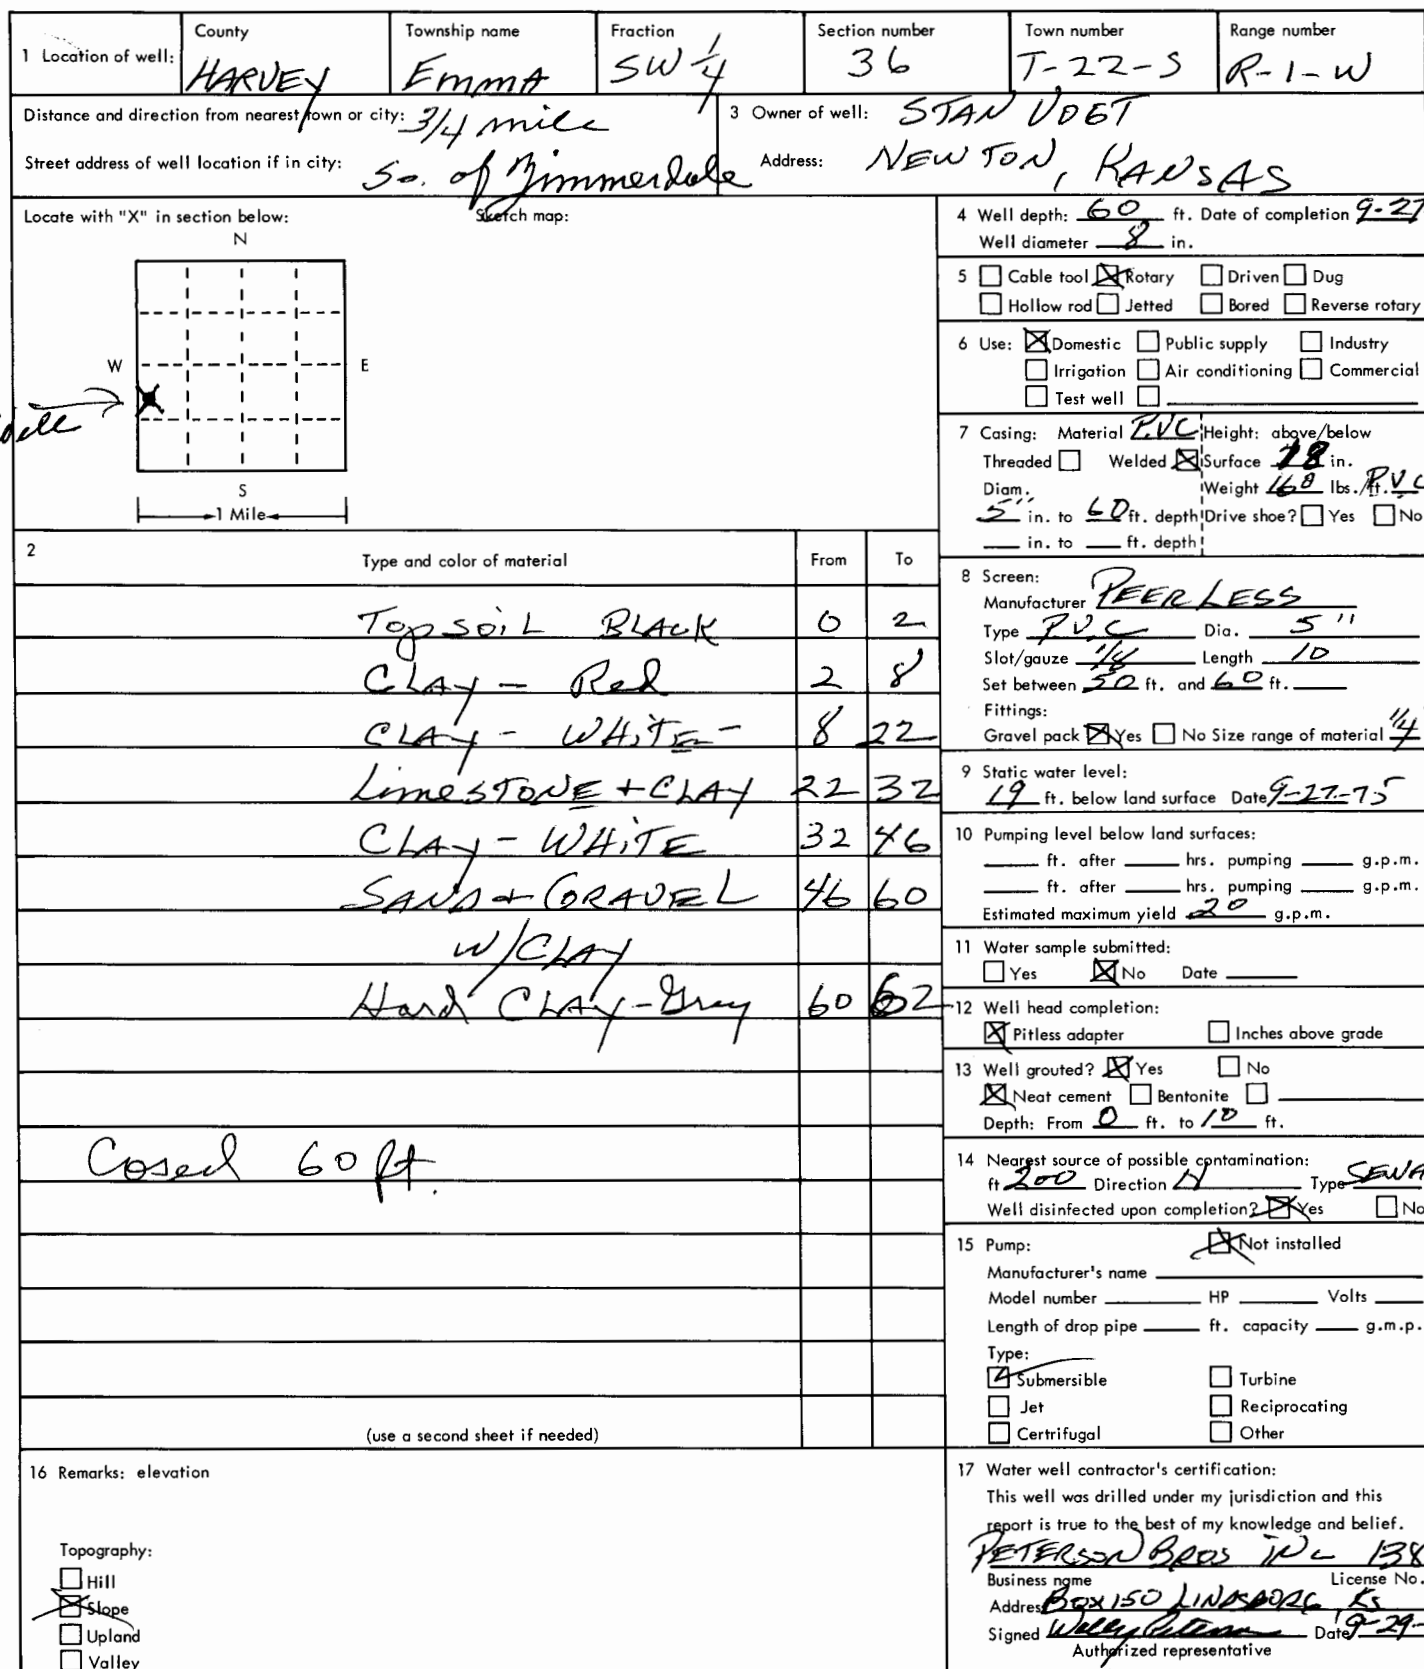 1 Location of well: County HARVEY Township name Emma Fraction SW 1/4 Section number 36 Town number T-22-S Range number R-1-W
Distance and direction from nearest town or city: 3/4 mile
Street address of well location if in city: So. of Zimmerdale
3 Owner of well: STAN VOGT
Address: NEWTON, KANSAS
Locate with "X" in section below: Sketch map:
N
W E
S
1 Mile
4 Well depth: 60 ft. Date of completion 9-27
Well diameter 8 in.
5 Cable tool Rotary Driven Dug
Hollow rod Jetted Bored Reverse rotary
6 Use: Domestic Public supply Industry
Irrigation Air conditioning Commercial
Test well
7 Casing: Material P.V.C Height: above/below
Threaded Welded Surface 18 in.
Diam. Weight 160 lbs./ft. P.V.C
5" in. to 60 ft. depth Drive shoe? Yes No
in. to ft. depth
2 Type and color of material From To
Topsoil BLACK 0 2
CLAY - Red 2 8
CLAY - WHITE - 8 22
LimeSTONE + CLAY 22 32
CLAY - WHITE 32 46
SAND + GRAVEL 46 60
W/CLAY
Hard CLAY - Gray 60 62
Cased 60 ft.
(use a second sheet if needed)
8 Screen:
Manufacturer PEERLESS
Type P.V.C Dia. 5"
Slot/gauze Length 10
Set between 50 ft. and 60 ft.
Fittings:
Gravel pack Yes No Size range of material 1/4
9 Static water level:
19 ft. below land surface Date 9-27-75
10 Pumping level below land surfaces:
ft. after hrs. pumping g.p.m.
ft. after hrs. pumping g.p.m.
Estimated maximum yield 20 g.p.m.
11 Water sample submitted:
Yes No Date
12 Well head completion:
Pitless adapter Inches above grade
13 Well grouted? Yes No
Neat cement Bentonite
Depth: From 0 ft. to 10 ft.
14 Nearest source of possible contamination:
ft 200 Direction N Type SEWA
Well disinfected upon completion? Yes No
15 Pump: Not installed
Manufacturer's name
Model number HP Volts
Length of drop pipe ft. capacity g.m.p.
Type:
Submersible Turbine
Jet Reciprocating
Certrifugal Other
16 Remarks: elevation
Topography:
Hill
Slope
Upland
Valley
17 Water well contractor's certification:
This well was drilled under my jurisdiction and this
report is true to the best of my knowledge and belief.
PETERSON BROS INC 138
Business name License No.
Address BOX 150 LINDSBORG, Ks
Signed Date 9-29-
Authorized representative